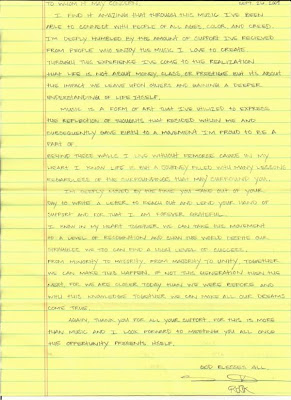 TO WHOM IT MAY CONCERN, SEPT. 2009
I FIND IT AMAZING THAT THROUGH THIS MUSIC I'VE BEEN
ABLE TO CONNECT WITH PEOPLE OF ALL AGES, COLOR, AND CREED.
I'M DEEPLY HUMBLED BY THE AMOUNT OF SUPPORT I'VE RECIEVED
FROM PEOPLE WHO ENJOY THE MUSIC I LOVE TO CREATE.
THROUGH THIS EXPERIENCE I'VE COME TO THE REALIZATION
THAT LIFE IS NOT ABOUT MONEY, CLASS, OR PRESTIGE BUT ITS ABOUT
THE IMPACT WE LEAVE UPON OTHERS AND GAINING A DEEPER
UNDERSTANDING OF LIFE ITSELF.
MUSIC IS A FORM OF ART THAT I'VE UTILIZED TO EXPRESS
THE REFLECTION OF THOUGHTS THAT RESIDED WITHIN ME AND
SUBSEQUENTLY GAVE BIRTH TO A MOVEMENT I'M PROUD TO BE A
PART OF.
BEHIND THESE WALLS I LIVE WITHOUT REMORSE CAUSE IN MY
HEART I KNOW LIFE IS BUT A JOURNEY FILLED WITH MANY LESSONS
REGARDLESS OF THE CIRCUMSTANCES THAT MAY SURROUND YOU.
I'M DEEPLY MOVED BY THE TIME YOU TAKE OUT OF YOUR
DAY TO WRITE A LETTER TO REACH OUT AND LEND YOUR HAND OF
SUPPORT AND FOR THAT I AM FOREVER GRATEFUL.
I KNOW IN MY HEART TOGETHER WE CAN TAKE THIS MOVEMENT
TO A LEVEL OF RECOGNITION AND SHOW THE WORLD DESPITE OUR
STRUGGLES WE TO CAN FIND A HIGH LEVEL OF SUCCESS.
FROM MINORITY TO MAJORITY, FROM MAJORITY TO UNITY, TOGETHER
WE CAN MAKE THIS HAPPEN, IF NOT THIS GENERATION THEN THE
NEXT, FOR WE ARE CLOSER TODAY THAN WE WERE BEFORE AND
WITH THIS KNOWLEDGE TOGETHER WE CAN MAKE ALL OUR DREAMS
COME TRUE.
AGAIN, THANK YOU FOR ALL YOUR SUPPORT, FOR THIS IS MORE
THAN MUSIC AND I LOOK FORWARD TO MEETING YOU ALL ONCE
THE OPPORTUNITY PRESENTS ITSELF.
GOD BLESSES ALL,